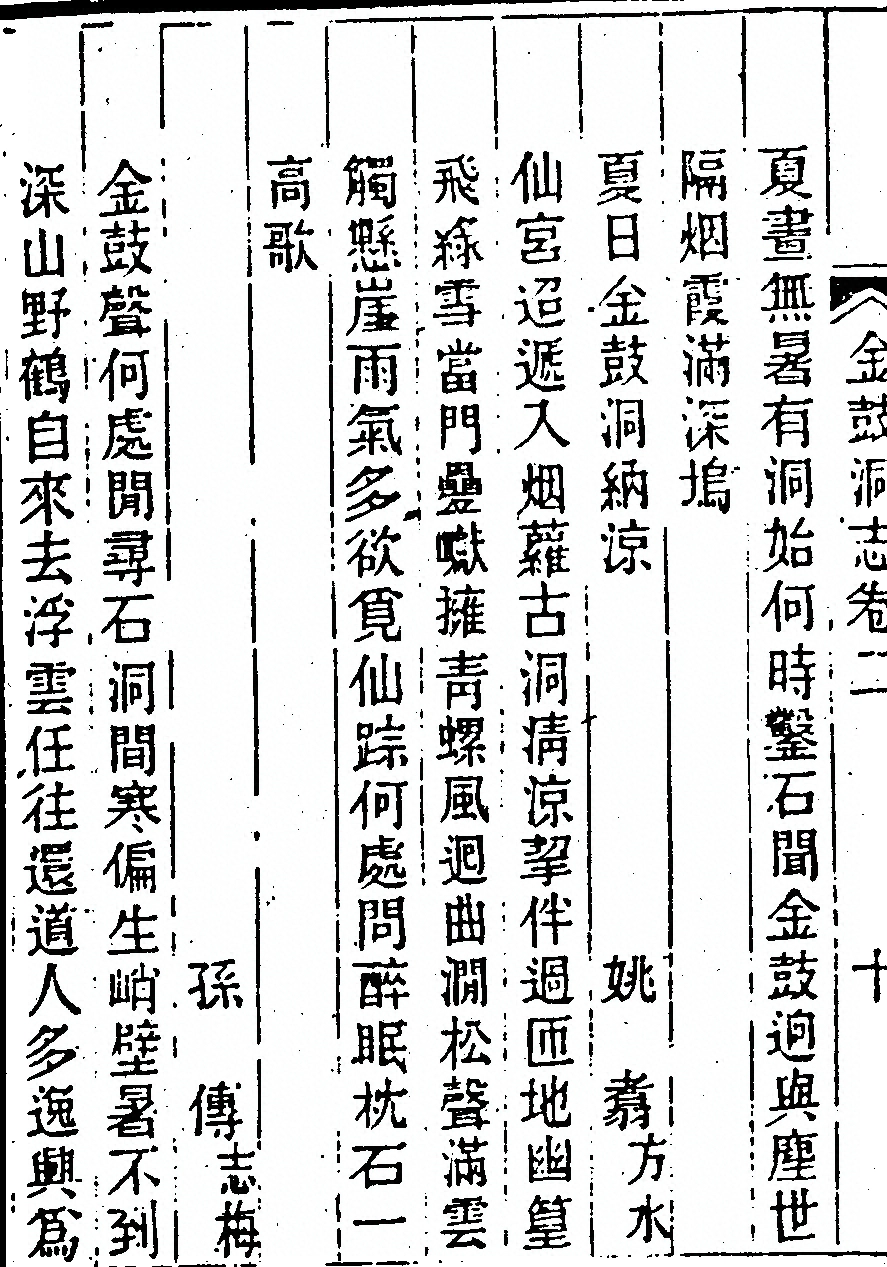 金鼓洞志卷二 十
夏晝無暑有洞始何時鑿石聞金鼓迥與塵世
隔烟霞滿深塢
夏日金鼓洞納涼 姚 翥方水
仙宮迢遞入烟蘿古洞清涼挈伴過匝地幽篁
飛綠雪當門疊巘擁青螺風迴曲澗松聲滿雲
觸懸崖雨氣多欲覓仙踪何處問醉眠枕石一
高歌
孫 傳志梅
金鼓聲何處聞尋石洞間寒偏生峭壁暑不到
深山野鶴自來去浮雲任往還道人多逸興為